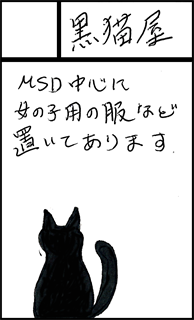 黒猫屋
MSD中心に
女の子用の服など
置いてあります